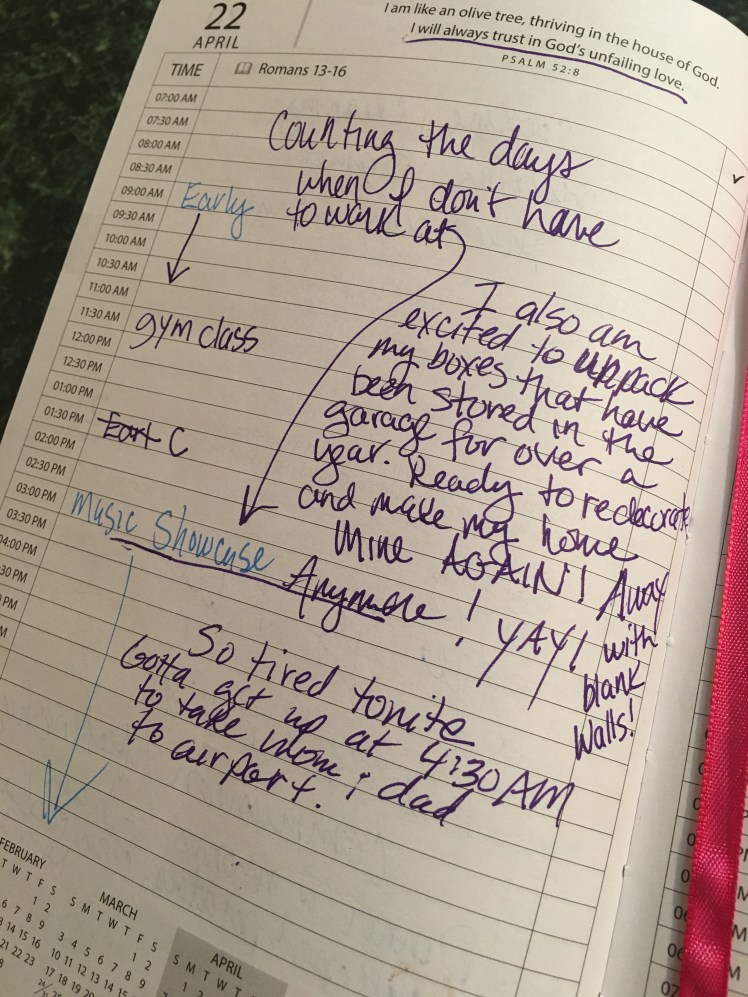 22
APRIL
I am like an olive tree, thriving in the house of God.
I will always trust in God's unfailing love.
PSALM 52:8
TIME
Romans 13-16
07:00 AM
07:30 AM
08:00 AM
08:30 AM
09:00 AM
09:30 AM
10:00 AM
10:30 AM
11:00 AM
11:30 AM
12:00 PM
12:30 PM
01:00 PM
01:30 PM
02:00 PM
02:30 PM
03:00 PM
03:30 PM
04:00 PM
30 PM
PM
M
Counting the days
when I don't have
to work at
Early
gym class
C
Music Showcase
Anymore!
I also am
excited to unpack
my boxes that have
been stored in the
garage for over a
year. Ready to redecorate
and make my home
mine AGAIN! Away
YAY! with
blank
walls!
So tired tonite
Gotta get up at 4:30 AM
to take mom & dad
to airport.
FEBRUARY
T W T F S
1 2
6 7 8 9
14 15 16
21 22 23
MARCH
S M T W T F S
1 2
3 4 5 6 7 8 9
10 11 12 13 14 15
17 18 19 20
APRIL
S M T W T
1 2